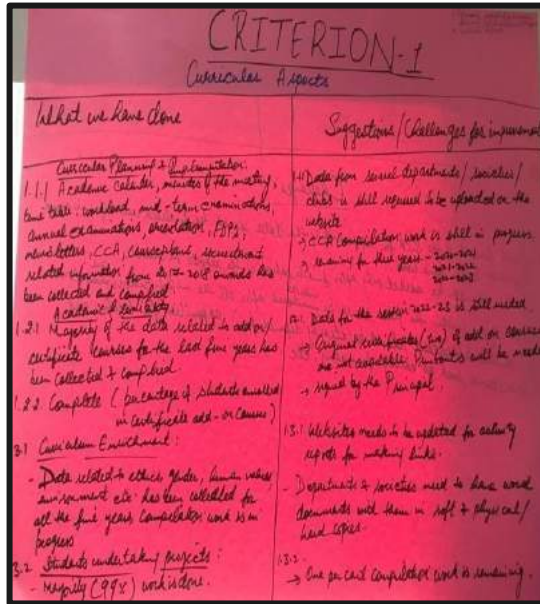 CRITERION-1
Curricular Aspects
What we have done
Curricular Planning & Implementation:
1.1.1 Academic Calender, minutes of the meeting,
time table, workload, mid-term examinations,
annual examinations, FDPs,
newsletters, CCA,
related information from 2017-2018 onwards has
been collected and compiled
Academic Flexibility
1.2.1 Majority of the data related to add on/
certificate courses for the last five years has
been collected & compiled.
1.2.2 Complete (percentage of students enrolled
in certificate add-on courses)
3.1 Curriculum Enrichment:
- Data related to ethics, gender, human values,
environment etc. has been collected for
all the five years, compilation work is in
progress
3.2 Students undertaking projects:
- Majority (99%) work is done.
Suggestions/Challenges for improvement
Data from several departments/societies/
clubs is still required to be uploaded on the
website
→ CCA compilation work is still in progress
→ remaining for three years - 2020-2021
2021-2022
2022-2023
Data for the session 2022-23 is still needed
Original certificates of add on courses
are not available. Printouts will be
signed by the Principal.
1.3.1 Websites needs to be updated for activity
reports for making links.
- Departments & societies need to have word
documents with them in soft & physical/
hard copies.
1.3.2
→ One per cent compilation work is remaining.